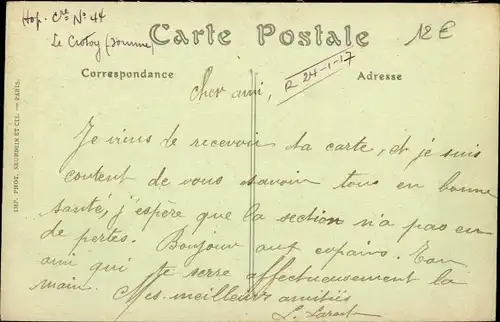 Hop. Cre No 44
Le Crotoy (Somme)
Carte Postale
12 €
Correspondance
Adresse
R 24-1-17
Cher ami,
Je viens de recevoir ta carte, et je suis
content de vous savoir tous en bonne
santé, j'espère que la section n'a pas eu
de pertes. Bonjour aux copains. Ton
ami qui te serre affectueusement la
main. Mes meilleurs amitiés
IMP. PHOT. NEURDEIN ET CIE. — PARIS.